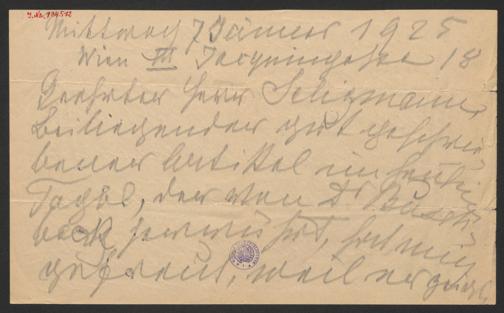 J.No. 194512
Mittwoch 7 Jänner 1925
Wien III Jacquingasse 18
Geehrter Herr Seligmann,
beiliegender gut geschrie
bener Artikel im heutigen
Tagbl, der von Dr
herrührt, hat mich
gefreut, weil er